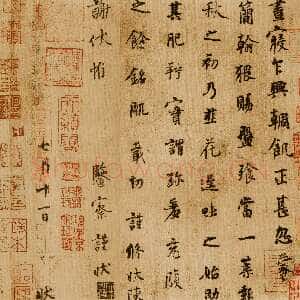 晝寢乍興輖飢正甚忽蒙
簡翰猥賜盤飧當一葉報
秋之初乃韭花逞味之始助
其肥羜實謂珍羞充腹
之餘銘肌載切謹修狀陳
謝伏惟 鑒察謹狀
七月十一日
狀